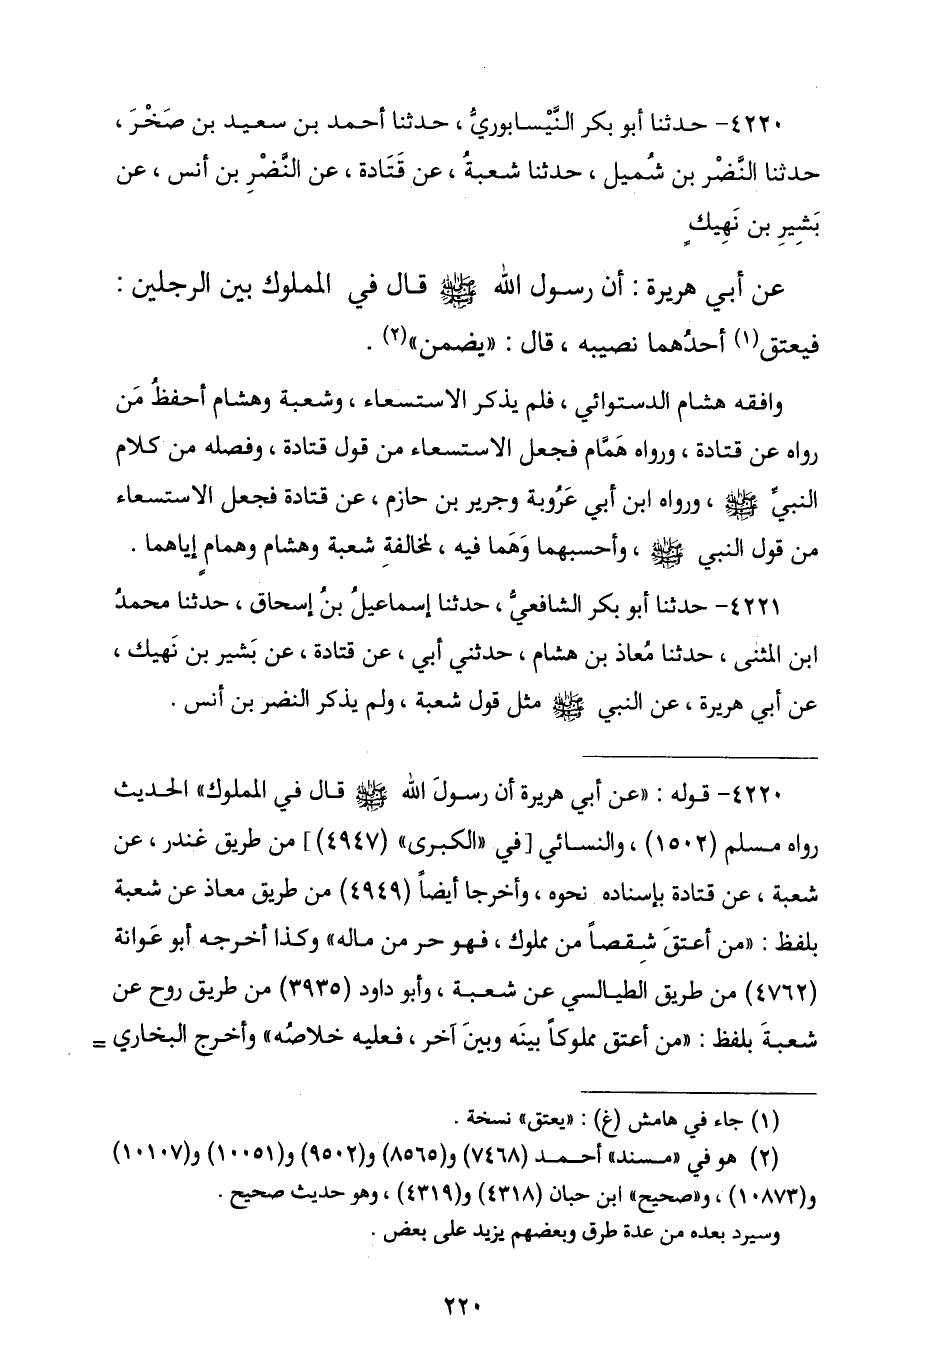 ٤٢٢٠- حدثنا أبو بكر النَّيْسابوريُّ ، حدثنا أحمد بن سعيد بن صَخْرَ ،
حدثنا النَّضْر بن شُميل ، حدثنا شعبةُ ، عن قَتَادة ، عن النَّضْرِ بن أنس ، عن
بَشِيرِ بن نَهِيكٍ
عن أبي هريرة : أن رسول الله ﷺ قال في المملوك بين الرجلين :
فيعتق(١) أحدُهما نصيبه ، قال : «يضمن»(٢) .
وافقه هشام الدستوائي ، فلم يذكر الاستسعاء ، وشعبة وهشام أحفظُ مَن
رواه عن قتادة ، ورواه هَمَّام فجعل الاستسعاء من قول قتادة ، وفصله من كلام
النبيِّ ﷺ ، ورواه ابن أبي عَرُوبة وجرير بن حازم ، عن قتادة فجعل الاستسعاء
من قول النبي ﷺ ، وأحسبهما وَهَما فيه ، لمخالفةِ شعبة وهشام وهمامٍ إياهما .
٤٢٢١- حدثنا أبو بكر الشافعيُّ ، حدثنا إسماعيلُ بنُ إسحاق ، حدثنا محمدُ
ابن المثنى ، حدثنا مُعاذ بن هشام ، حدثني أبي ، عن قتادة ، عن بَشير بن نَهيك ،
عن أبي هريرة ، عن النبي ﷺ مثل قول شعبة ، ولم يذكر النضر بن أنس .
٤٢٢٠- قوله : «عن أبي هريرة أن رسولَ الله ﷺ قال في المملوك» الحديث
رواه مسلم (١٥٠٢) ، والنسائي [في «الكبرى» (٤٩٤٧)] من طريق غندر ، عن
شعبة ، عن قتادة بإسناده نحوه ، وأخرجا أيضاً (٤٩٤٩) من طريق معاذ عن شعبة
بلفظ : «من أعتقَ شِقصاً من مملوك ، فهو حر من ماله» وكذا أخرجه أبو عَوانة
(٤٧٦٢) من طريق الطيالسي عن شعبة ، وأبو داود (٣٩٣٥) من طريق روح عن
شعبةَ بلفظ : «من أعتق مملوكاً بينَه وبينَ آخر ، فعليه خلاصُه» وأخرج البخاري =
(١) جاء في هامش (غ) : «يعتق» نسخة .
(٢) هو في «مسند» أحمد (٧٤٦٨) و(٨٥٦٥) و(٩٥٠٢) و(١٠٠٥١) و(١٠١٠٧)
و(١٠٨٧٣) ، و«صحيح» ابن حبان (٤٣١٨) و(٤٣١٩) ، وهو حديث صحيح .
وسيرد بعده من عدة طرق وبعضهم يزيد على بعض .
٢٢٠